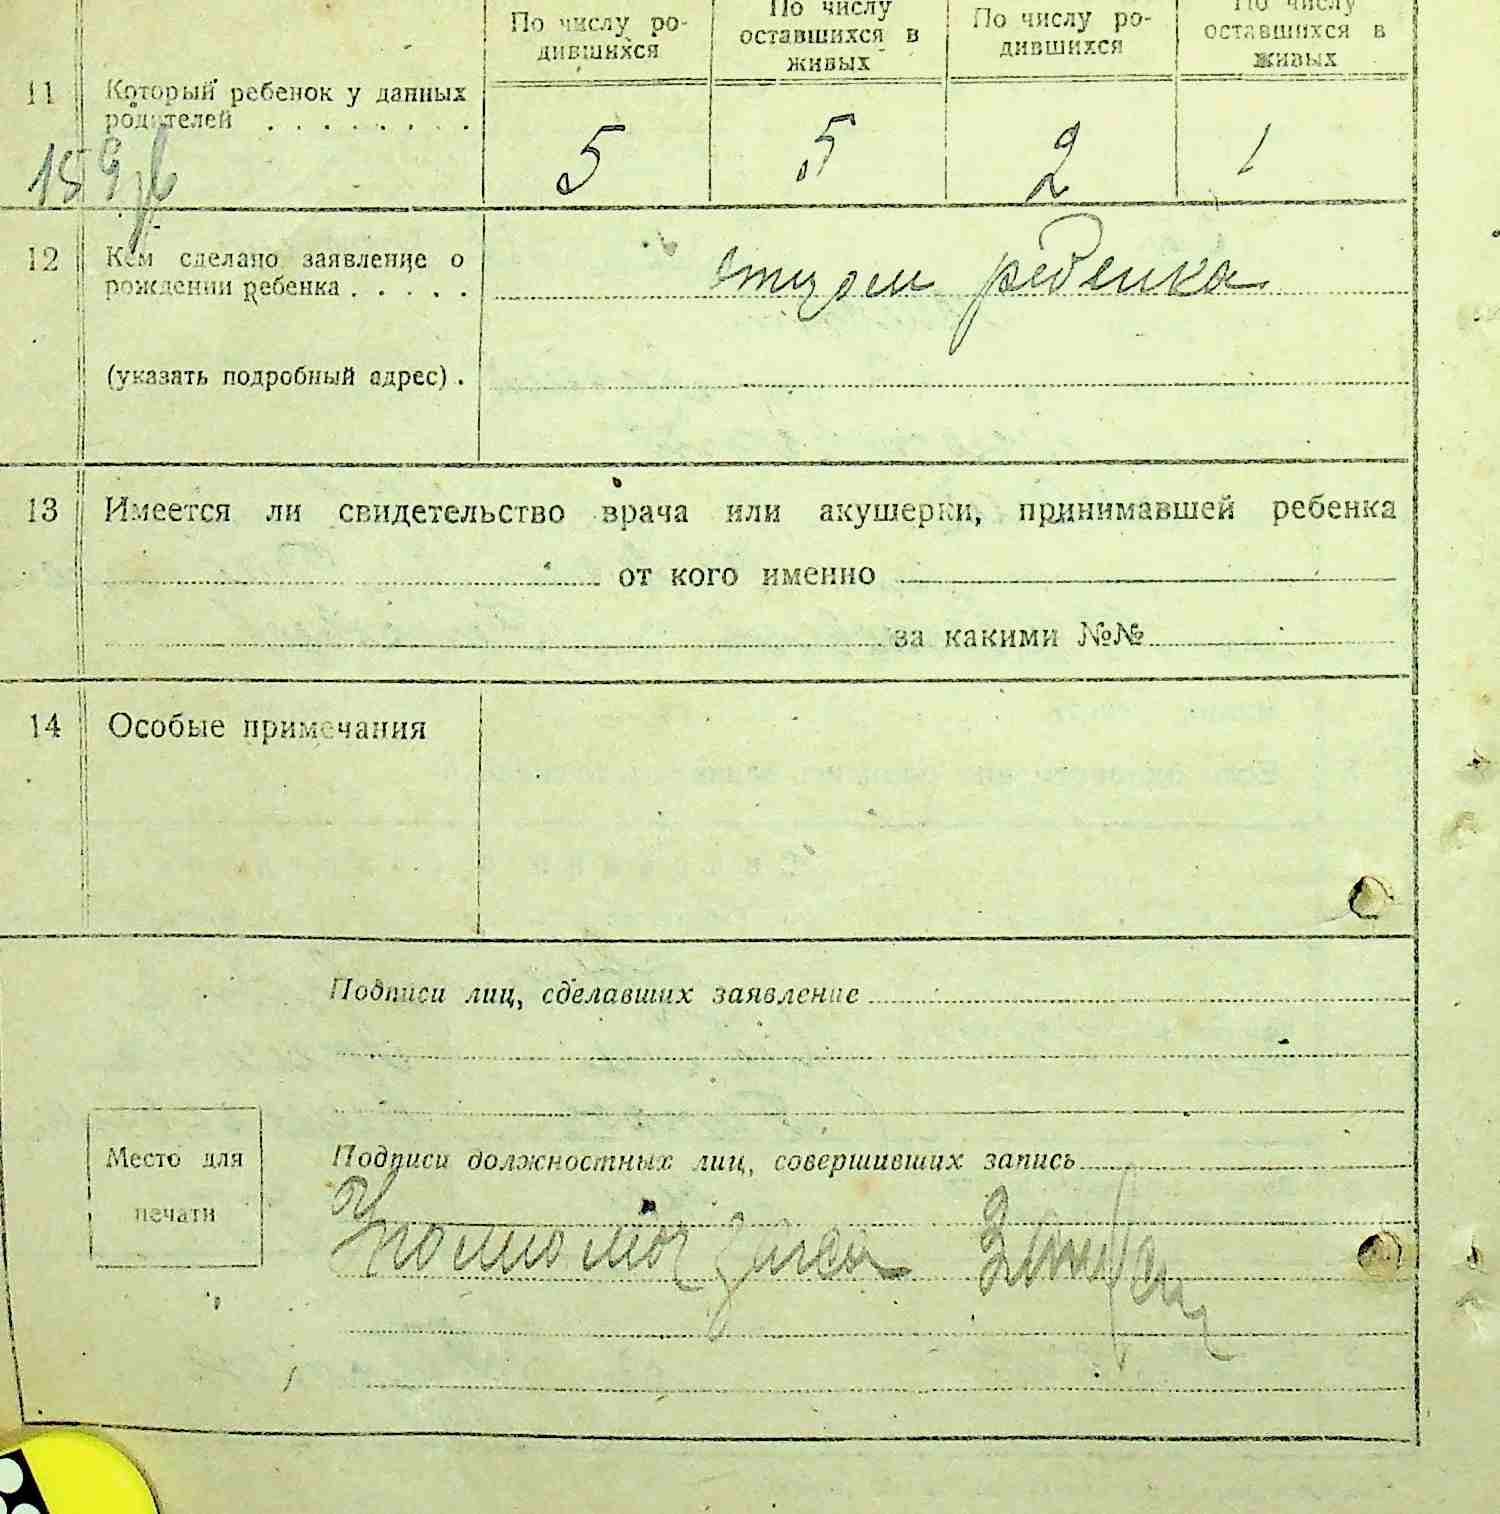 По числу ро-
дившихся
По числу
оставшихся в
живых
По числу ро-
дившихся
По числу
оставшихся в
живых
11 Который ребенок у данных
родителей . . . . . . . .
5 5 2 1
12 Кем сделано заявление о
рождении ребенка . . . . .
отцом ребенка
(указать подробный адрес) .
13 Имеется ли свидетельство врача или акушерки, принимавшей ребенка
от кого именно
за какими №№
14 Особые примечания
Подписи лиц, сделавших заявление
Место для
печати
Подписи должностных лиц, совершивших запись
загса